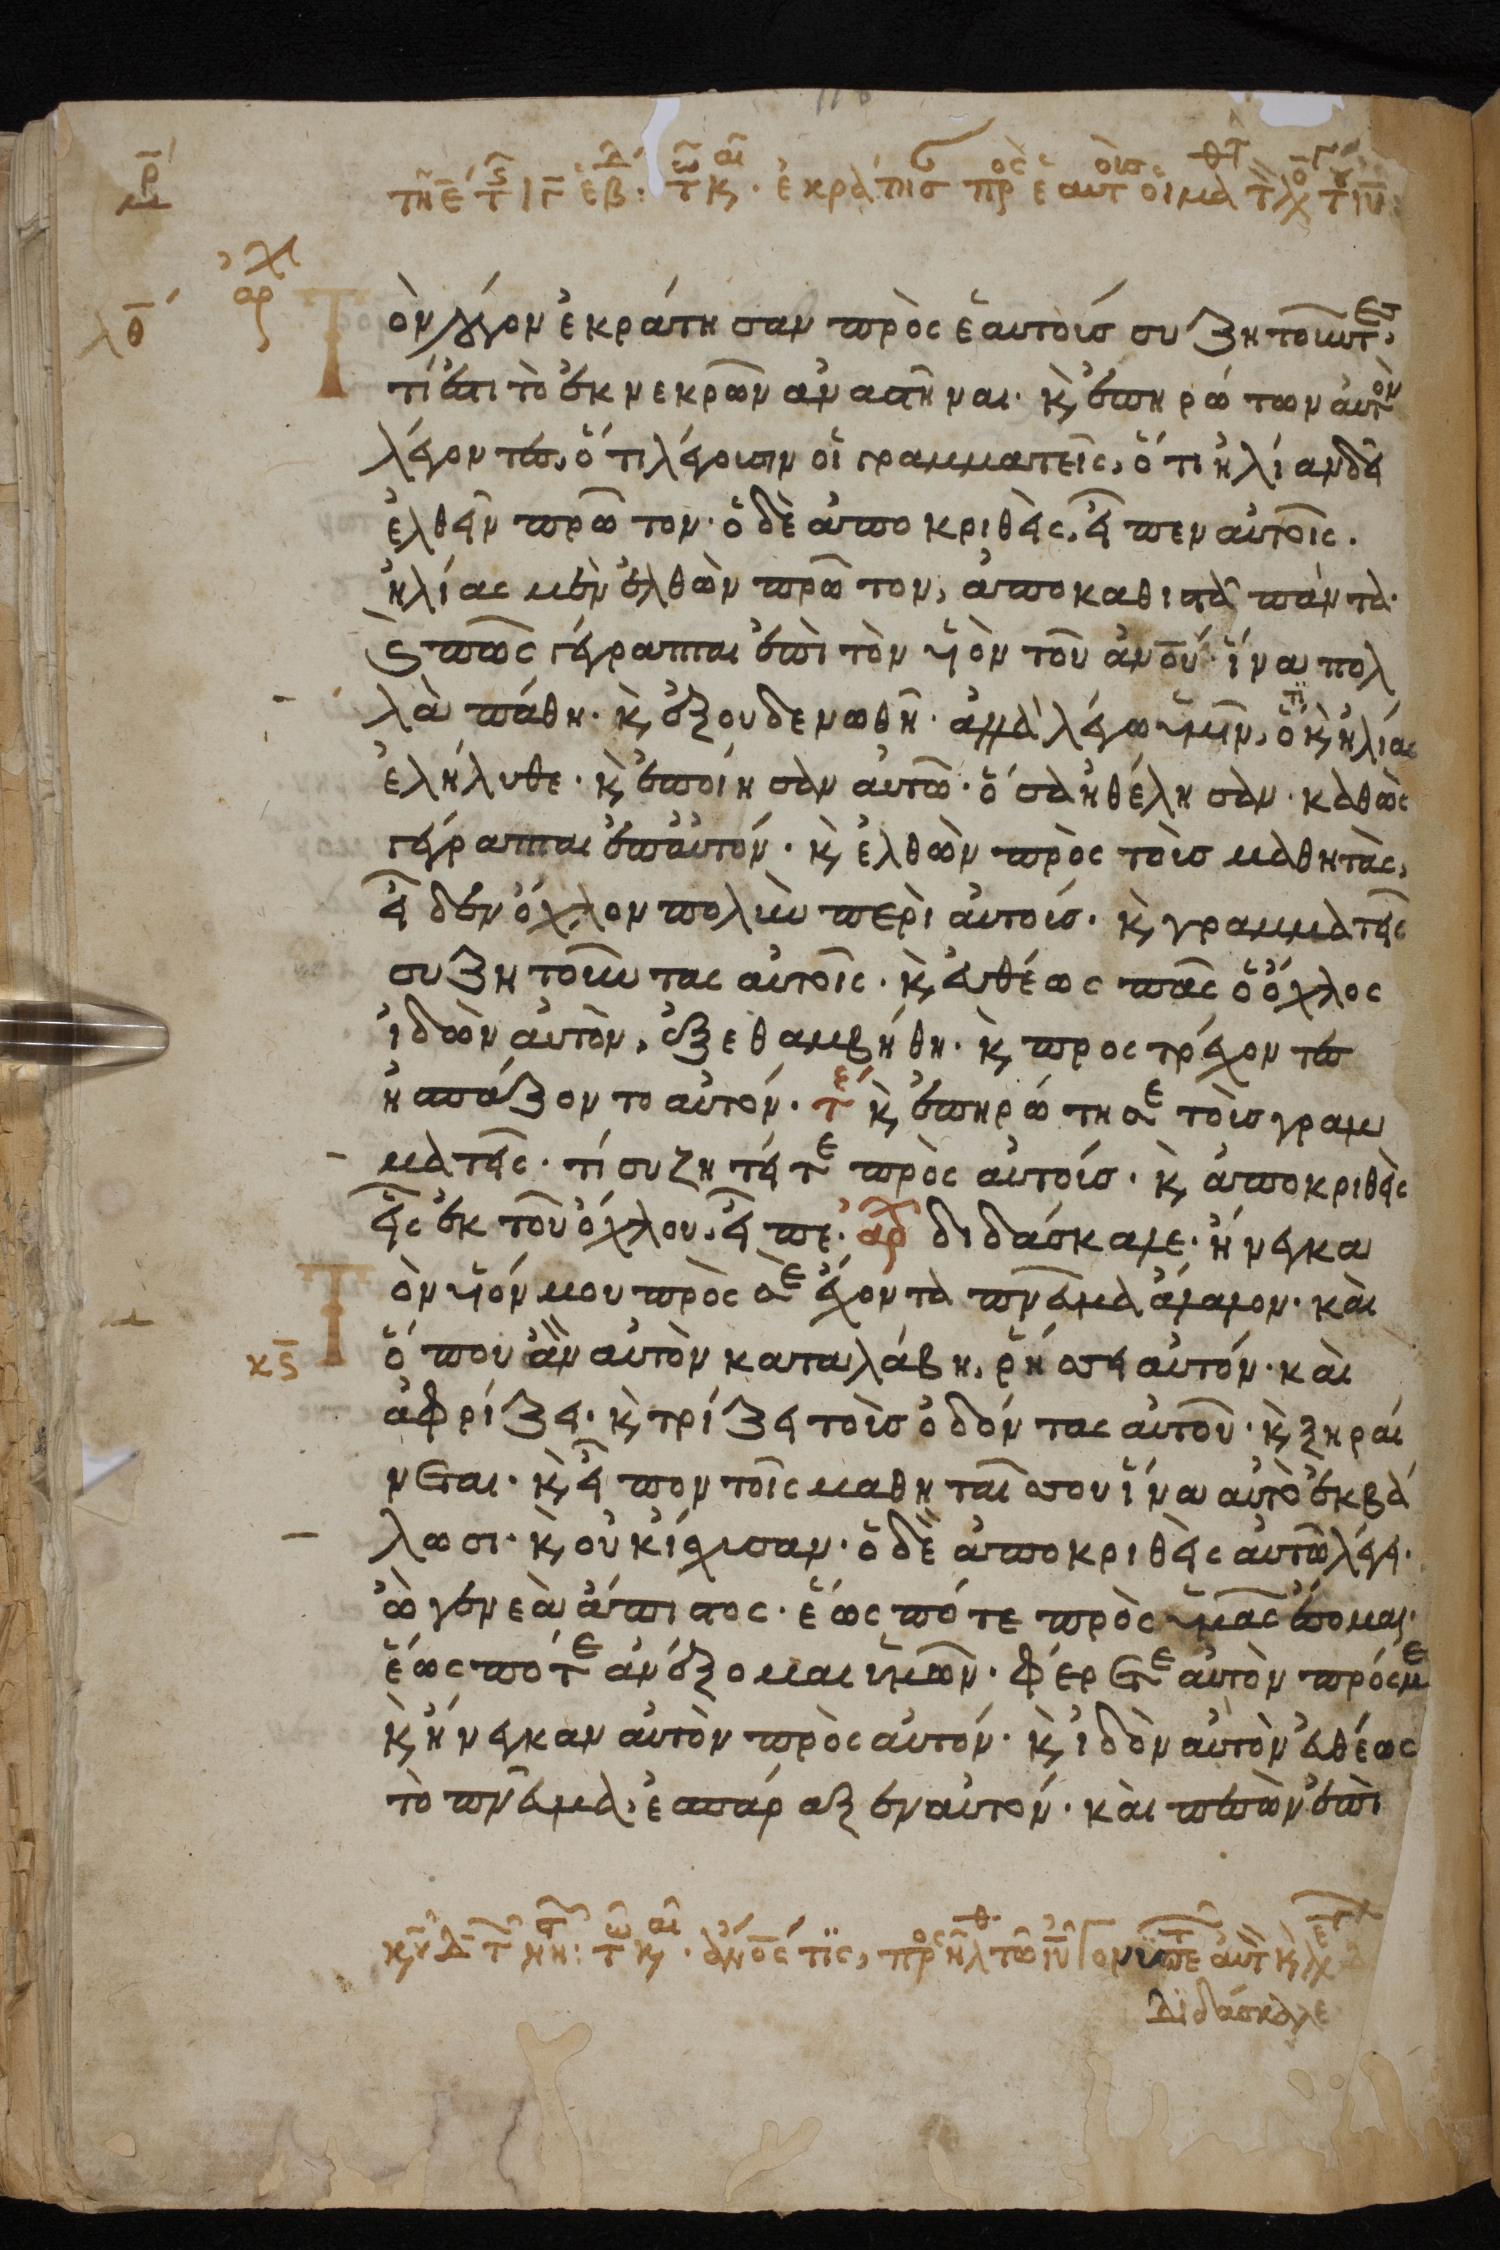 Τὸν λόγον ἐκράτησαν πρὸς ἑαυτοὺς συζητοῦντες,
τί ἐστι τὸ ἐκ νεκρῶν ἀναστῆναι· κ, ἐπηρώτων αὐτὸν
λέγοντες, ὅτι λέγουσιν οἱ γραμματεῖς, ὅτι ἠλίαν δεῖ
ἐλθεῖν πρῶτον· ὁ δὲ ἀποκριθεὶς, εἶπεν αὐτοῖς.
ἠλίας μὲν ἐλθὼν πρῶτον, ἀποκαθιστᾶ πάντα·
κ, πῶς γέγραπται ἐπὶ τὸν υἱὸν τοῦ ἀνου· ἵνα πολ
λὰ πάθη· κ, ἐξουδενωθῆ· ἀλλὰ λέγω ὑμῖν, ὅτι κ, ἠλίας
ἐλήλυθε· κ, ἐποίησαν αὐτῶ· ὅσα ἠθέλησαν· καθὼς
γέγραπται ἐπαὐτόν· κ, ἐλθὼν πρὸς τοὺς μαθητὰς,
εἶδεν ὄχλον πολὺν περὶ αὐτούς· κ, γραμματεῖς
συζητοῦντας αὐτοῖς· κ, εὐθέως πᾶς ὁ ὄχλος
ἰδὼν αὐτὸν, ἐξεθαμβήθη· κ, προστρέχοντες
ἠσπάζοντο αὐτόν· τε κ, ἐπηρώτησε τοὺς γραμ
ματεῖς· τί συζητεῖτε πρὸς αὐτούς· κ, ἀποκριθεὶς
εἷς ἐκ τοῦ ὄχλου, εἶπε· αρχ διδάσκαλε· ἤνεγκα
Τὸν υἱόν μου πρὸς σὲ ἔχοντα πνεῦμα ἄλαλον· καὶ
κϛ ὅπου ἂν αὐτὸν καταλάβη, ῥήσσει αὐτόν· καὶ
ἀφρίζει· κ, τρίζει τοὺς ὀδόντας αὐτοῦ· κ, ξηραί
νεται· κ, εἶπον τοῖς μαθηταῖς σου ἵνα αὐτὸ ἐκβά
λωσι· κ, οὐκ ἴσχυσαν· ὁ δὲ ἀποκριθεὶς αὐτῶ λέγει·
ὦ γενεὰ ἄπιστος· ἕως πότε πρὸς ὑμᾶς ἔσομαι·
ἕως πότε ἀνέξομαι ὑμῶν· φέρετε αὐτὸν πρός με
κ, ἤνεγκαν αὐτὸν πρὸς αὐτόν· κ, ἰδὸν αὐτὸν εὐθέως
τὸ πνεῦμα, ἐσπάραξεν αὐτόν· καὶ πεσὼν ἐπὶ
Διδάσκαλε